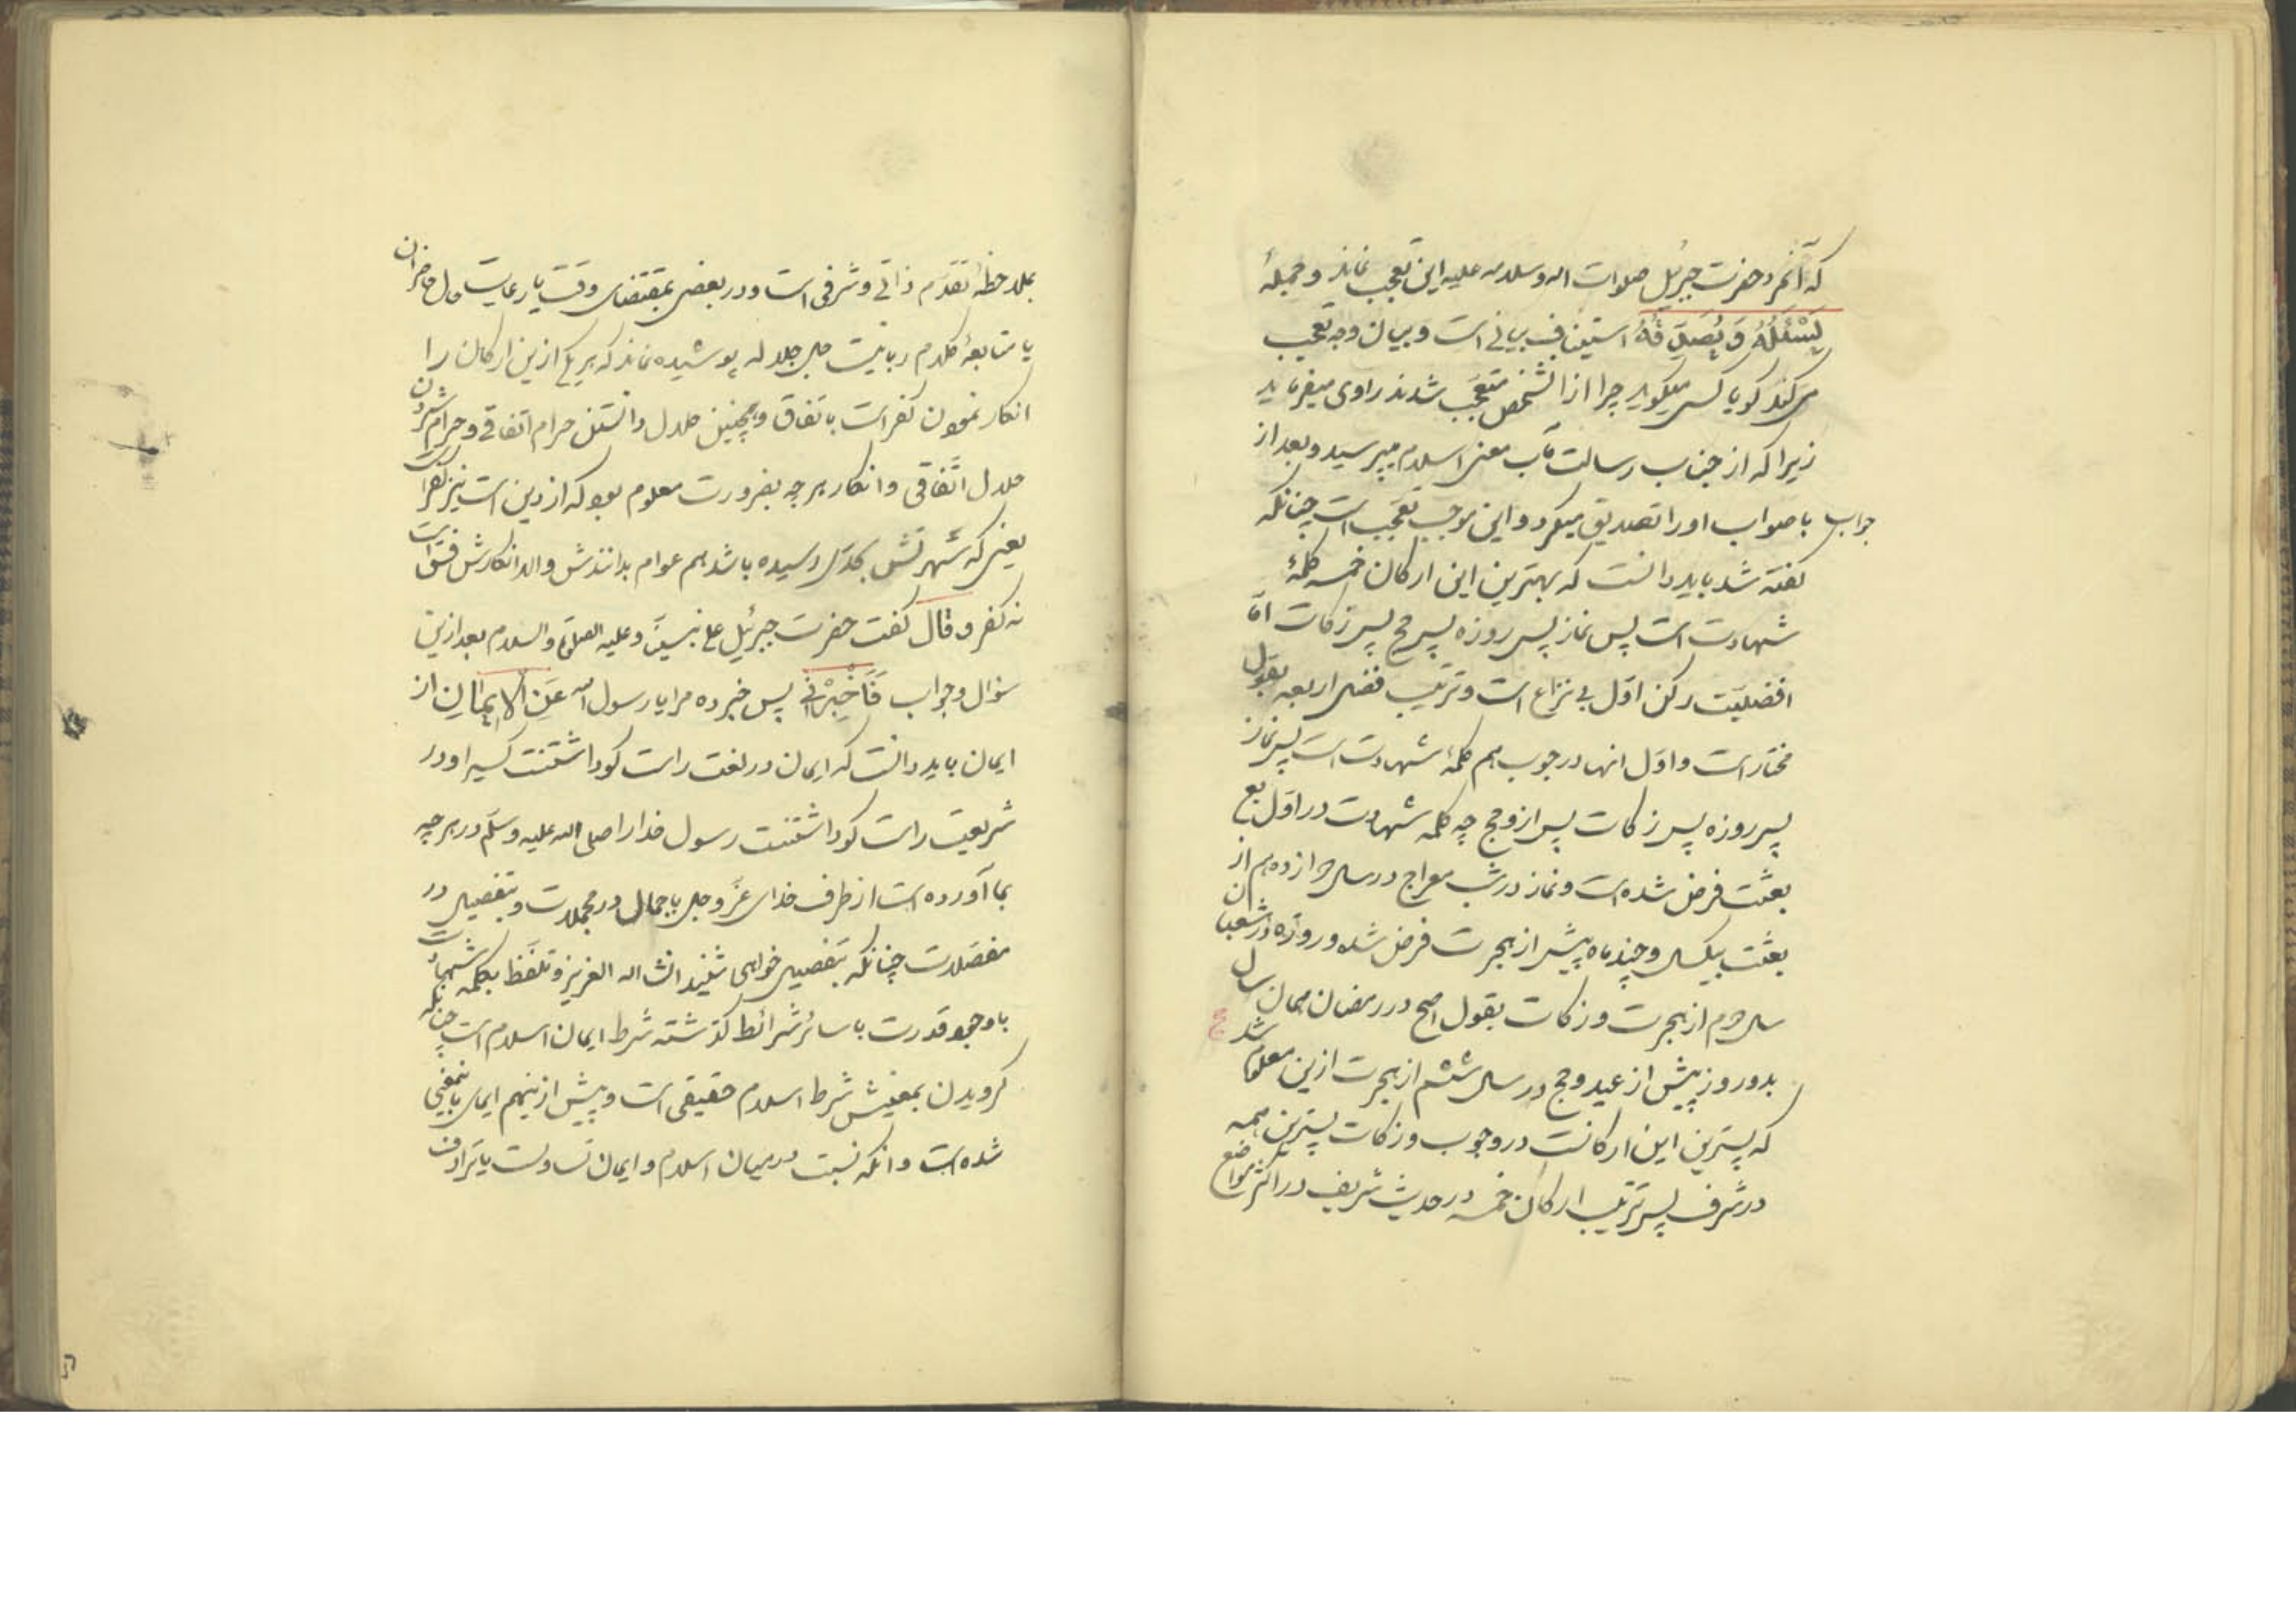 که آنمرد حضرت جبرئیل صلوات اله وسلامه علیه این تعجب نماند و جملهٔ
یَسْئَلُهُ وَ یُصَدِّقُهُ استیناف بیانی است و بیان وجه تعجب
می کند کویا کسی میکوید چرا از انشخص متعجب شدند راوی میفرماید
زیرا که از جناب رسالت مآب معنی اسلام میپرسید و بعد از
جواب با صواب اورا تصدیق میکرد و این موجب تعجب است چنانکه
کفته شد باید دانست که بهترین این ارکان خمسه کلمهٔ
شهادت است پس نماز پس روزه پس حج پس زکات امّا
افضلیّت رکن اوّل بی نزاع است و ترتیب فضلی اربعه بقول
مختار است و اوّل انها در وجوب هم کلمهٔ شهادت است پس نماز
پس روزه پس زکات پس ازو حج چه کلمه شهادت در اوّل
بعثت فرض شده است و نماز در شب معراج در سال دوازدهم از
بعثت بیکسال و چند ماه پیش از هجرت فرض شده و روزه در شعبان
سال دوم از هجرت و زکات بقول اصح در رمضان همان سال
بدو روز پیش از عید و حج در سال ششم از هجرت ازین معلوم شد
که پسترین این ارکانست در وجوب و زکات پسترین همه
در شرف پس ترتیب ارکان خمسه در حدیث شریف در اکثر مواضع
بملاحظهٔ تقدّم ذاتی و شرفی است و در بعضی بمقتضای وقت یا رعایت حال حاضران
یا متابعهٔ کلام ربانیست جل جلاله پوشیده نماند که هریکی ازین ارکان را
انکار نمودن کفر است باتفاق و همچنین حلال دانستن حرام اتفاقی و حرام شمردن
حلال اتّفاقی و انکار هرچه بضرورت معلوم بود که از دین است نیز کفر است
یعنی که شهرتش بحدّی رسیده باشد هم عوام بدانندش والا انکارش فسق است
نه کفر و قال کفت حضرت جبرئیل علی نبینّا و علیه الصلوة والسلام بعد ازین
سؤال و جواب فَاَخْبِرْنِی پس خبر ده مرا یا رسول الله عَنِ الْاِیمَانِ از
ایمان باید دانست که ایمان در لغت راست کو داشتنت کسیرا و در
شریعت راست کو داشتنت رسول خدارا صلی الله علیه وسلّم در هرچه
بما آورده است از طرف خدای عزّ و جل باجمال در مجملات و بتفصیل در
مفصّلات چنانکه بتفصیل خواهی شنید انشاء اله العزیز و تلفّظ بکلمه شهادت
باوجود قدرت با سائر شرائط کذشته شرط ایمان اسلام است چنانکه
کرویدن بمعنیش شرط اسلام حقیقی است و پیش ازینهم ایمای باینمعنی
شده است وانکه نسبت درمیان اسلام و ایمان تساویست یا ترادف